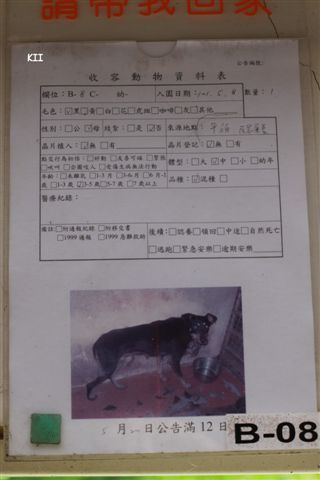 請帶我回家
KII
公告編號:
收容動物資料表
欄位:B-8 C- 幼- 入園日期:101.5.8 數量:1
毛色:☑黑□黃□白□花□虎斑□咖啡□灰□其他
性別:□公☑母 歧紮:□是☑否 來源地點:
晶片植入:☑無□有 晶片登記:☑無□有
點交行為初估:□好動□友善可鄰□緊張
□吠叫□企圖咬人□受傷生病無法行動
體型:□大☑中□小□幼年
年齡:□未離乳□1-3月□3-6月□6月-1
歲□1-3歲☑3-5歲□5-7歲□7歲以上
品種:☑混種□
醫療紀錄:
備註:□附通報紀錄□附移交書
□1999通報□1999急難救助
後續:□認養□領回□中途□自然死亡
□逃跑□緊急安樂□逾期安樂
5月20日公告滿12日
B-08